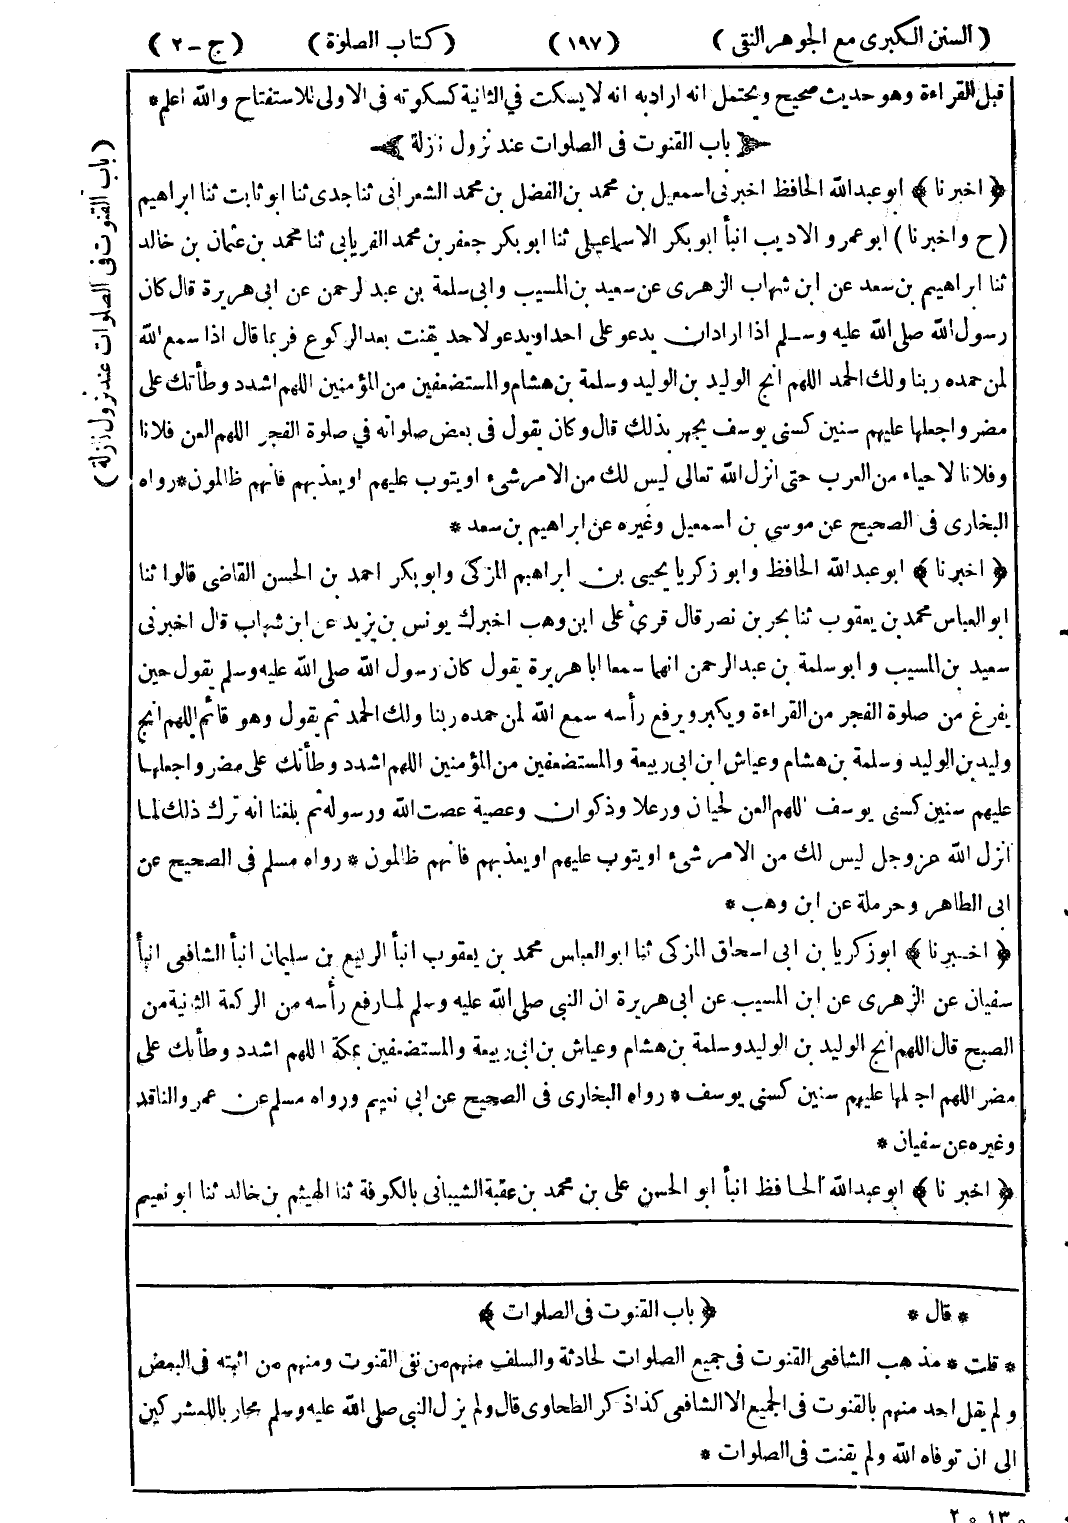 ( السنن الكبرى مع الجوهر النقى ) ( ١٩٧ ) ( كتاب الصلوة ) ( ج - ٢ )
قبل القراءة وهو حديث صحيح ويحتمل انه اراد به انه لا يسكت في الثانية كسكوته فى الاولى للاستفتاح والله اعلم *
باب القنوت فى الصلوات عند نزول نازلة
﴿ اخبرنا ﴾ ابو عبدالله الحافظ اخبرنى اسمعيل بن محمد بن الفضل بن محمد الشعرانى ثنا جدى ثنا ابو ثابت ثنا ابراهيم
( ح واخبرنا ) ابو عمرو الاديب انبأ ابو بكر الاسماعيلى ثنا ابو بكر جعفر بن محمد الفريابى ثنا محمد بن عثمان بن خالد
ثنا ابراهيم بن سعد عن ابن شهاب الزهرى عن سعيد بن المسيب وابى سلمة بن عبد لرحمن عن ابى هريرة قال كان
رسول الله صلى الله عليه وسلم اذا ارادان يدعو على احد او يدعو لاحد يقنت بعد الركوع فربما قال اذا سمع الله
لمن حمده ربنا ولك الحمد اللهم انج الوليد بن الوليد وسلمة بن هشام والمستضعفين من المؤمنين اللهم اشدد وطأتك على
مضر واجعلها عليهم سنين كسنى يوسف يجهر بذلك قال وكان يقول فى بعض صلواته في صلوة الفجر اللهم العن فلانا
وفلانا لاحياء من العرب حتى انزل الله تعالى ليس لك من الامر شىء او يتوب عليهم او يعذبهم فانهم ظالمون * رواه
البخارى فى الصحيح عن موسي بن اسمعيل وغيره عن ابراهيم بن سعد *
﴿ اخبرنا ﴾ ابو عبدالله الحافظ وابو زكريا يحيى بن ابراهيم المزكى وابو بكر احمد بن الحسن القاضى قالوا ثنا
ابو العباس محمد بن يعقوب ثنا بحر بن نصر قال قرئ على ابن وهب اخبرك يونس بن يزيد عن ابن شهاب قال اخبرنى
سعيد بن المسيب وابو سلمة بن عبد الرحمن انهما سمعا ابا هريرة يقول كان رسول الله صلى الله عليه وسلم يقول حين
يفرغ من صلوة الفجر من القراءة ويكبر ويرفع رأسه سمع الله لمن حمده ربنا ولك الحمد ثم يقول وهو قائم اللهم انج
وليد بن الوليد وسلمة بن هشام وعياش ابن ابى ربيعة والمستضعفين من المؤمنين اللهم اشدد وطأتك على مضر واجعلها
عليهم سنين كسنى يوسف اللهم العن لحيان ورعلا وذكوان وعصية عصت الله ورسوله ثم بلغنا انه ترك ذلك لما
انزل الله عزوجل ليس لك من الامر شىء او يتوب عليهم او يعذبهم فانهم ظالمون * رواه مسلم فى الصحيح عن
ابى الطاهر وحرملة عن ابن وهب *
﴿ اخبرنا ﴾ ابو زكريا بن ابى اسحاق المزكى ثنا ابو العباس محمد بن يعقوب انبأ الربيع بن سليمان انبأ الشافعى انبأ
سفيان عن الزهرى عن ابن المسيب عن ابى هريرة ان النبي صلى الله عليه وسلم لما رفع رأسه من الركعة الثانية من
الصبح قال اللهم انج الوليد بن الوليد وسلمة بن هشام وعياش بن ابى ربيعة والمستضعفين بمكة اللهم اشدد وطأتك على
مضر اللهم اجعلها عليهم سنين كسنى يوسف * رواه البخارى فى الصحيح عن ابى نعيم ورواه مسلم عن عمرو الناقد
وغيره عن سفيان *
﴿ اخبرنا ﴾ ابو عبدالله الحافظ انبأ ابو الحسن على بن محمد بن عقبة الشيبانى بالكوفة ثنا الهيثم بن خالد ثنا ابو نعيم
* قال * ﴿ باب القنوت فى الصلوات ﴾
* قلت * مذهب الشافعى القنوت فى جميع الصلوات لحادثة والسلف منهم من نفى القنوت ومنهم من اثبته فى البعض
ولم يقل احد منهم بالقنوت فى الجميع الا الشافعى كذا ذكر الطحاوى قال ولم يزل النبى صلى الله عليه وسلم محاربا للمشركين
الى ان توفاه الله ولم يقنت فى الصلوات *
( باب القنوت فى الصلوات عند نزول نازلة )